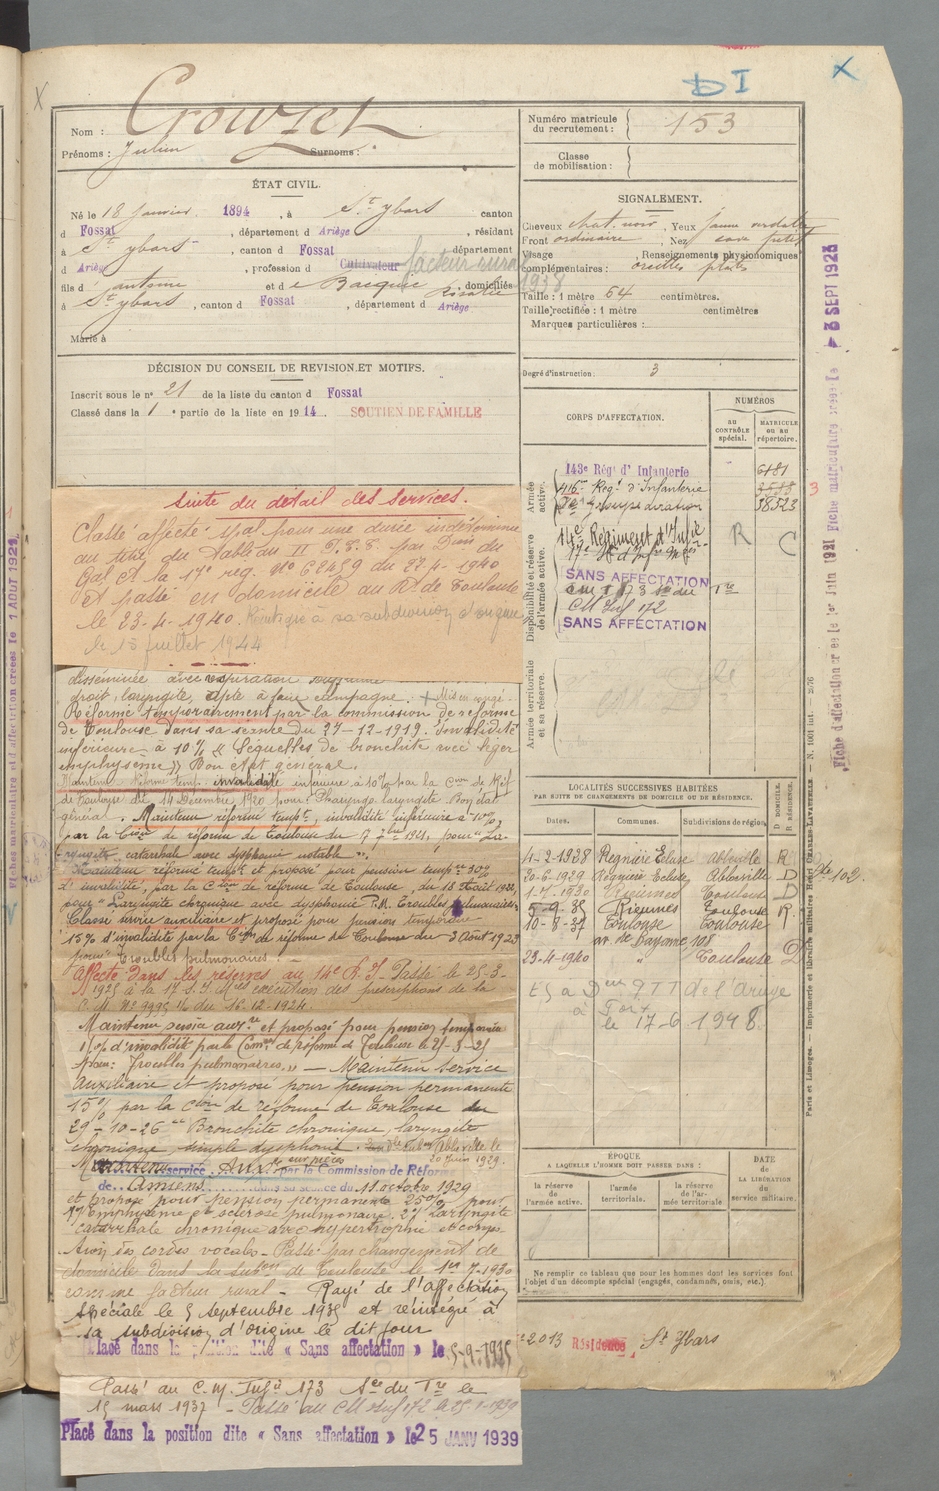 D I
X
X
Nom : Crouzet
Prénoms : Julien Surnoms :
ÉTAT CIVIL.
Né le 18 Janvier 1894, à St Ybars canton
d Fossat, département d Ariège, résidant
à St Ybars, canton d Fossat département
d Ariège, profession d Cultivateur facteur rural 1938
fils d' Antoine et de Bacquié Rosalie domiciliés
à St Ybars, canton d Fossat, département d Ariège
Marié à
DÉCISION DU CONSEIL DE REVISION ET MOTIFS.
Inscrit sous le no 21 de la liste du canton d Fossat
Classé dans la 1e partie de la liste en 1914. SOUTIEN DE FAMILLE
suite du détail des services.
Classe affecté spal pour une durée indéterminée
au titre du Tableau II par Don du
Gal Ct la 17e reg. No 62459 du 22-4-1940
et passé en domicile au Rt de Toulouse
le 23-4-1940. Réintégré à sa subdivision d'origine
le 15 juillet 1944
disséminée avec respiration
droit, laryngite, apte à faire campagne. + Mis en congé
Réformé temporairement par la commission de réforme
de Toulouse dans sa séance du 27-12-1919. Invalidité
inférieure à 10 % « Séquelles de bronchite avec léger
emphysème » Bon état général.
Maintenu réformé temp. invalidité inférieure à 10% par la Con de Réf
de Toulouse du 14 Décembre 1920 pour : Pharyngo laryngite Bon état
général. Maintenu réformé tempre, invalidité inférieure à 10%
par la Cion de réforme de Toulouse du 7 7bre 1921, pour "La-
ryngite catarrhale avec dysphonie notable".
Maintenu réformé tempt et proposé pour pension tempre 30%
d'invalidité, par la Cion de réforme de Toulouse, du 18 Août 1922,
pour "Laryngite chronique avec dysphonie P.M. Troubles pulmonaires"
Classé service auxiliaire et proposé pour pension temporaire
15% d'invalidité par la Cion de réforme de Toulouse du 3 Août 1923
pour "Troubles pulmonaires".
Affecté dans les réserves au 14e R.I. Passé le 25-3-
1925 à la 17e S.I. exécution des prescriptions de la
C.M. No 9995 du 16-12-1924.
Maintenu service auxre et proposé pour pension temporaire
15% d'invalidité par la Comon de réforme de Toulouse le 21-3-25
Troubles pulmonaires. » — Maintenu service
auxiliaire et proposé pour pension permanente
15% par la Cion de réforme de Toulouse du
29-10-26 "Bronchite chronique, laryngite
chronique, simple dysphonie. Abbeville le
20 juin 1929.
Maintenu service Auxre sur pièces par la Commission de Réforme
de Amiens dans sa séance du 11 octobre 1929
et proposé pour pension permanente 25% pour
1o/ Emphysème et sclérose pulmonaire 2o/ Laryngite
catarrhale chronique avec hypertrophie et conges
tion des cordes vocales. Passé par changement de
domicile dans la subon de Toulouse le 1er 7-1930
comme facteur rural - Rayé de l'affectation
spéciale le 5 septembre 1935 et réintégré à
sa subdivision d'origine le dit jour
Placé dans la position dite « Sans affectation » le 5-9-1935
Passé au C.M. Infie 173 Son du Tre le
15 mars 1937 - Passé au CM Inf 172 le 25-1-1939
Placé dans la position dite « Sans affectation » le 25 JANV 1939
Numéro matricule du recrutement : 153
Classe de mobilisation :
SIGNALEMENT.
Cheveux chat. noir, Yeux jaune verdâtre
Front ordinaire, Nez cave petit
Visage , Renseignements physionomiques
complémentaires : oreilles plates
Taille : 1 mètre 64 centimètres.
Taille rectifiée : 1 mètre centimètres
Marques particulières :
Degré d'instruction : 3
CORPS D'AFFECTATION.
NUMÉROS
AU CONTRÔLE spécial.
MATRICULE ou au répertoire.
Armée active.
143e Régt d'Infanterie 6181
416e Regt d'Infanterie 3588
2e Groupe d'aviation 38523
Disponibilité et réserve de l'armée active.
14e Régiment d'Infie R C
SANS AFFECTATION
CM Inf 173 Son du Tre
CM Inf 172
SANS AFFECTATION
Armée territoriale et sa réserve.
LOCALITÉS SUCCESSIVES HABITÉES
PAR SUITE DE CHANGEMENTS DE DOMICILE OU DE RÉSIDENCE.
Dates. Communes. Subdivisions de région. D DOMICILE. R RÉSIDENCE.
4-2-1928 Regnière Ecluse Abbeville R
20-6-1929 Regnière Ecluse Abbeville D
1-7-1930 Rieumes Toulouse D
5-9-35 Rieumes Toulouse R
10-8-37 Toulouse Toulouse
av. de Bayonne 108
23-4-1940 " Toulouse D
102.
de l'Ariège
à Foix
le 17-6 1948.
ÉPOQUE
A LAQUELLE L'HOMME DOIT PASSER DANS :
la réserve de l'armée active. l'armée territoriale. la réserve de l'armée territoriale.
DATE de LA LIBÉRATION du service militaire.
Ne remplir ce tableau que pour les hommes dont les services font
l'objet d'un décompte spécial (engagés, condamnés, omis, etc.).
2013 Résidence St Ybars
3 SEPT 1923
3
Fiche d'affectation créée le 1er Juin 1921 Fiche matriculaire créée le
Paris et Limoges. — Imprimerie et librairie militaires Henri CHARLES-LAVAUZELLE — N. 1001 int. — 2876
Fiches matriculaire et d'affectation créées le 1 AOUT 1921